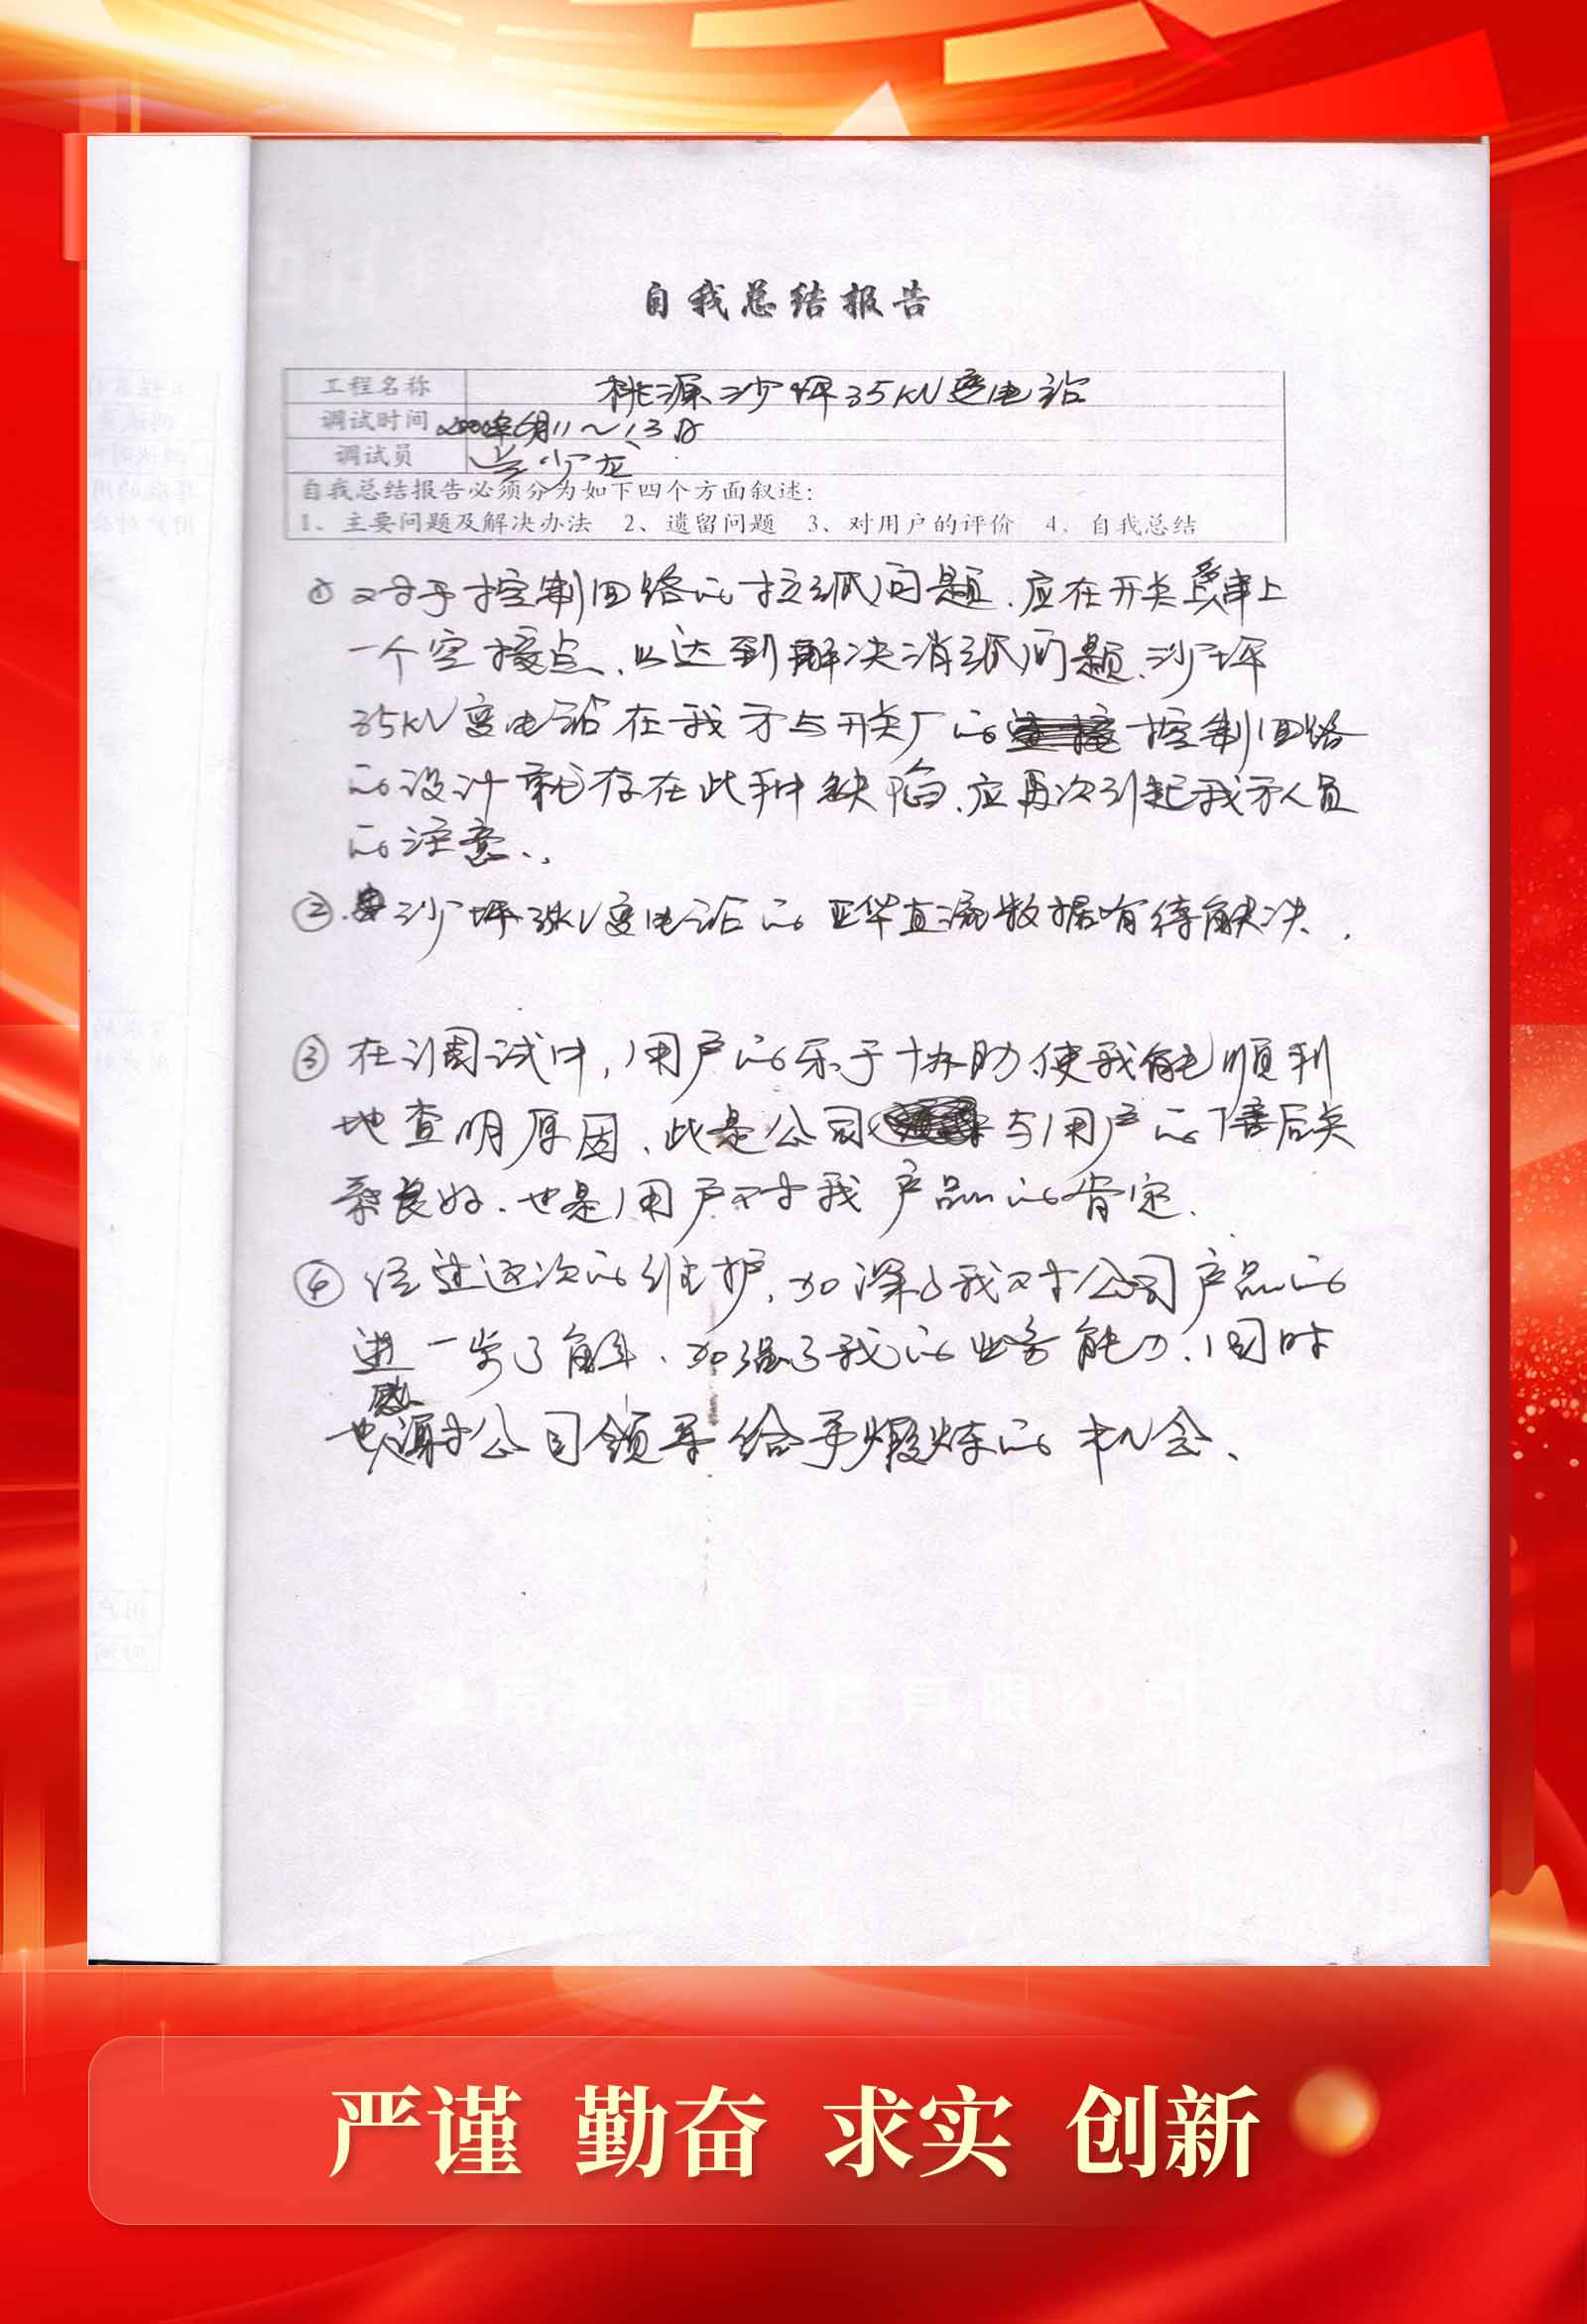 自我总结报告
工程名称 桃源沙坪35KV变电站
调试时间 2000年6月11～13日
调试员 少龙
自我总结报告必须分为如下四个方面叙述：
1、主要问题及解决办法 2、遗留问题 3、对用户的评价 4、自我总结
① 对于控制回络的拉弧问题.应在开关串上
一个空接点、以达到解决消弧问题.沙坪
35KV变电站在我方与开关厂的控制回络
的设计就存在此种缺陷.应再次引起我方人员
的注意.
②.沙坪35KV变电站的亚华直流数据有待解决.
③ 在调试中,用户的乐于协助使我能顺利
地查明原因、此是公司与用户的售后关
系良好.也是用户对我产品的肯定.
④ 经过这次的维护,加深了我对公司产品的
进一步了解、加强了我的业务能力、同时
也感谢公司领导给予煅炼的机会、
严谨 勤奋 求实 创新